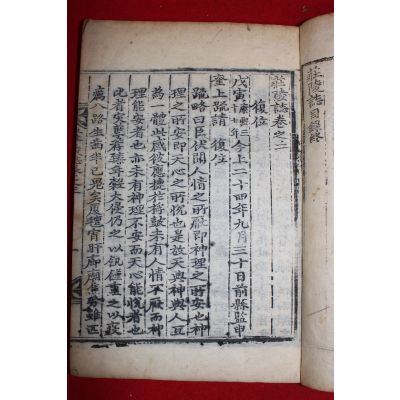 莊陵誌目錄終
莊陵誌卷之二
復位
戊寅康熙三十七年今上二十四年九月三十日前縣監申
奎上疏請 復位
疏略曰臣伏聞人情之所厭即神理之所安也神
理之所安即天心之所悅也是故天與神與人互
為一體此感彼應捷於桴鼓未有人情不厭而神
理能安者亦未有神理不安而天心能悅者也
此者災異荐臻年穀大侵仍之以飢饉重之以疫
癘八路生齒半已鬼矣 宵旰廊廟 雖匹